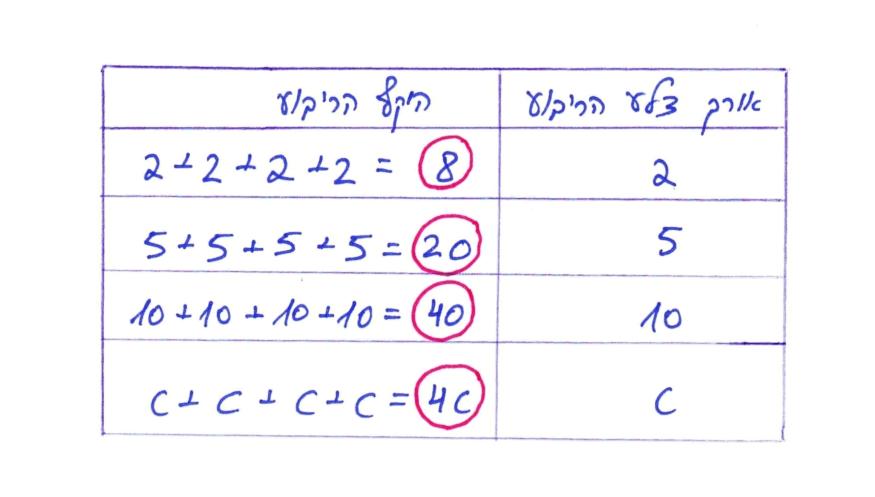 אורך צלע הריבוע היקף הריבוע
2 2+2+2+2 = 8
5 5+5+5+5 = 20
10 10+10+10+10 = 40
c c+c+c+c = 4c